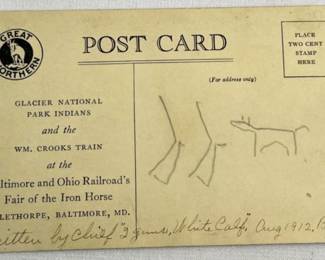 GREAT NORTHERN
POST CARD
PLACE
TWO CENT
STAMP
HERE
(For address only)
GLACIER NATIONAL
PARK INDIANS
and the
WM. CROOKS TRAIN
at the
ltimore and Ohio Railroad's
Fair of the Iron Horse
LETHORPE, BALTIMORE, MD.
itten by Chief "2 guns, White Calf" Aug 1912.